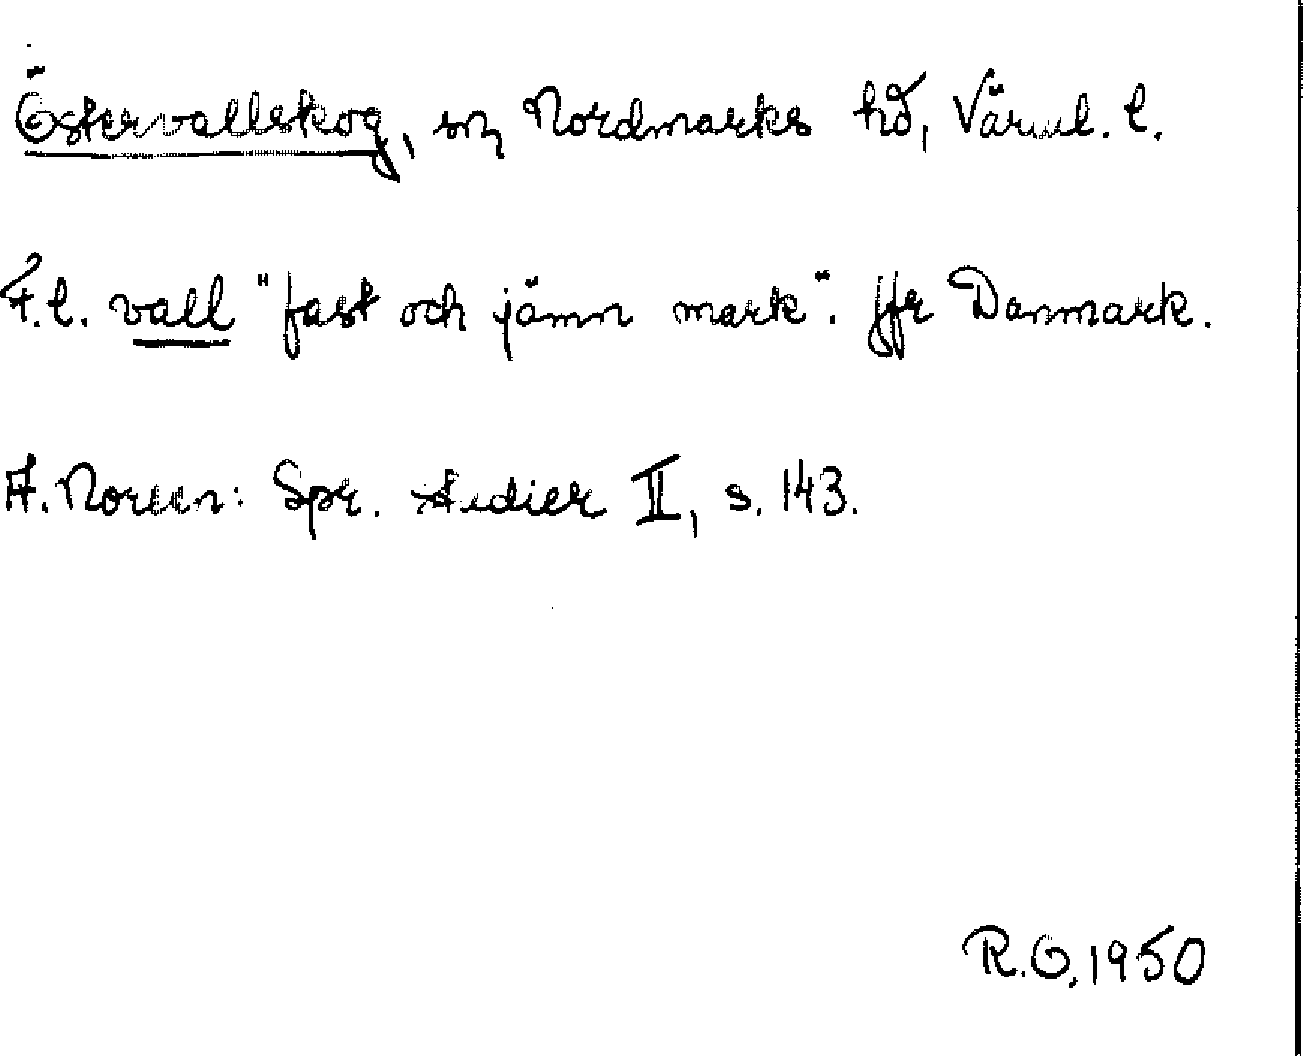 Östervallskog, sn, Nordmarks hd, Värml. l.
F.l. vall "fast och jämn mark". Jfr Danmark.
A. Noreen: Spr. studier II, s. 143.
R.O. 1950